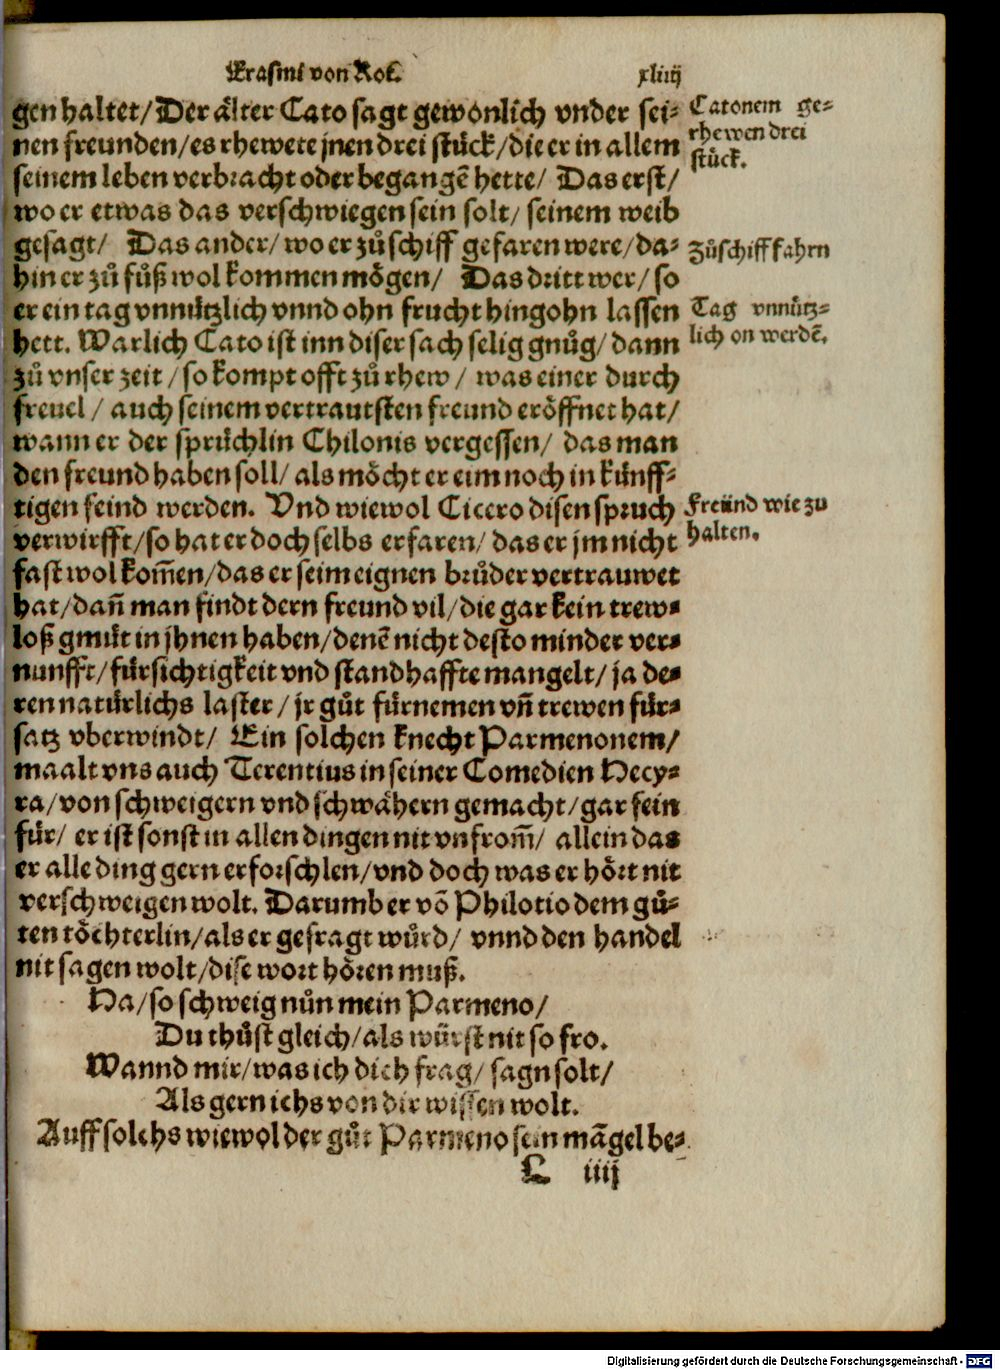 Erasmi von Rot. xliiij
gen haltet/Der älter Cato sagt gewonlich vnder sei-
nen freunden/es rhewete jnen drei stück/die er in allem
seinem leben verbracht oder begangē hette/ Das erst/
wo er etwas das verschwiegen sein solt/ seinem weib
gesagt/ Das ander/wo er zů schiff gefaren were/da-
hin er zů fůß wol kommen mögen/ Das dritt wer/ so
er ein tag vnnützlich vnnd ohn frucht hingohn lassen
hett. Warlich Cato ist inn diser sach selig gnůg/ dann
zů vnser zeit /so kompt offt zů rhew/ was einer durch
freuel/ auch seinem vertrautsten freund eröffnet hat/
wann er der sprüchlin Chilonis vergessen/ das man
den freund haben soll/ als möcht er eim noch in künff-
tigen feind werden. Vnd wiewol Cicero disen spruch
verwirfft/so hat er doch selbs erfaren/ das er jm nicht
fast wol kom̄en/das er seim eignen brůder vertrauwet
hat/dañ man findt dern freund vil/die gar kein trew-
loß gmüt in jhnen haben/denē nicht desto minder ver-
nunfft/fürsichtigkeit vnd standhaffte mangelt/ ja de-
ren natürlichs laster/jr gůt fürnemen vñ trewen für-
satz vberwindt/ Ein solchen knecht Parmenonem/
maalt vns auch Terentius in seiner Comedien Hecy-
ra/von schweigern vnd schwähern gemacht/gar fein
für/ er ist sonst in allen dingen nit vnfrom̄/ allein das
er alle ding gern erforschlen/vnd doch was er hört nit
verschweigen wolt. Darumb er vō Philotio dem gů-
ten töchterlin/als er gefragt würd/ vnnd den handel
nit sagen wolt/dise wort hören muß.
Ha/so schweig nůn mein Parmeno/
Du thůst gleich/als würst nit so fro.
Wannd mir/was ich dich frag/ sagn solt/
Als gern ichs von dir wissen wolt.
Auff solchs wiewol der gůt Parmeno sein māgel be-
L iiij
Catonem ge-
rhewen drei
stück.
Zůschiff fahrn
Tag vnnütz-
lich on werdē.
Freünd wie zu
halten.
Digitalisierung gefördert durch die Deutsche Forschungsgemeinschaft - DFG